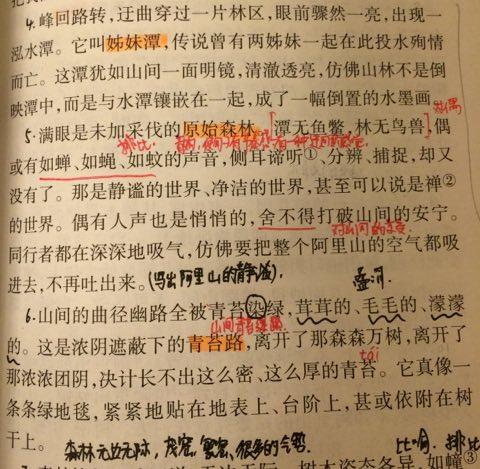 4.峰回路转,迂曲穿过一片林区,眼前骤然一亮,出现一
泓水潭。它叫姊妹潭,传说曾有两姊妹一起在此投水殉情
而亡。这潭犹如山间一面明镜,清澈透亮,仿佛山林不是倒
映潭中,而是与水潭镶嵌在一起,成了一幅倒置的水墨画。
对偶
5.满眼是未加采伐的原始森林,[潭无鱼鳖,林无鸟兽],偶
排比
或有如蝉、如蝇、如蚊的声音,侧耳谛听①、分辨、捕捉,却又
没有了。那是静谧的世界、净洁的世界,甚至可以说是禅②
的世界。偶有人声也是悄悄的,舍不得打破山间的安宁。
同行者都在深深地吸气,仿佛要把整个阿里山的空气都吸
进去,不再吐出来。(写出阿里山的静谧).
叠词.
6.山间的曲径幽路全被青苔染绿,茸茸的、毛毛的、濛濛
的。这是浓阴遮蔽下的青苔路,离开了那森森万树,离开了
tái
那浓浓团阴,决计长不出这么密、这么厚的青苔。它真像一
条条绿地毯,紧紧地贴在地表上、台阶上,甚或依附在树
干上。
森林无边无际,茂密,繁密,很多的气势.
比喻.排比
③